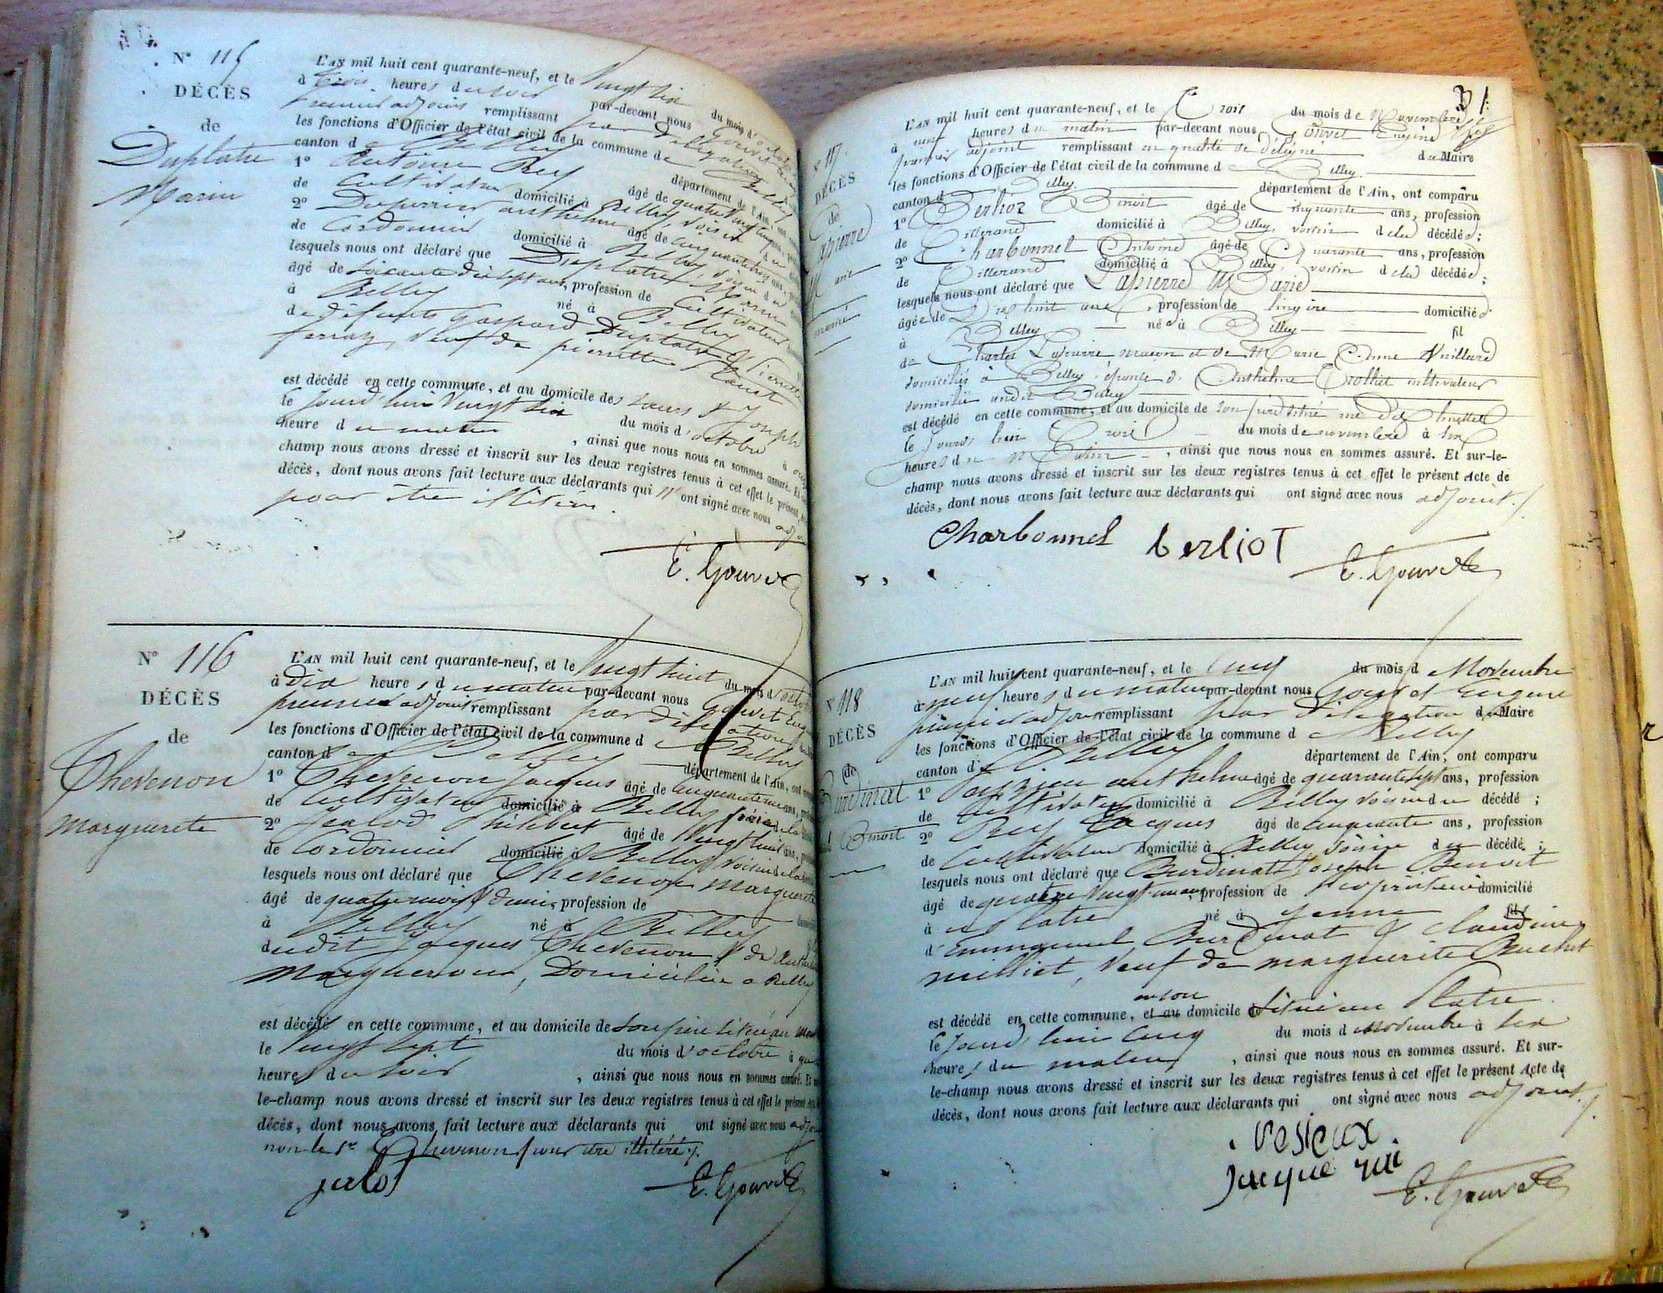 N° 115
DÉCÈS
de
Duplatre
Marin
L'AN mil huit cent quarante-neuf, et le Vingt six du mois d'octobre
à trois heures du soir par-devant nous Gouvet
premier adjoint remplissant par délégation
les fonctions d'Officier de l'état civil de la commune de Belley
canton de Belley département de l'Ain,
1° Antoine Rey âgé de quatre vingt
de cultivateur domicilié à Belley, voisin
2° Duperrier anthelme âgé de cinquante
de Cordonnier domicilié à Belley, voisin
lesquels nous ont déclaré que Duplatre Marin
âgé de soixante dix sept ans, profession de Cultivateur
à Belley né à Belley
de défunts Gaspard Duplatre & Pierrette
ferraz, Veuf de pierrette
est décédé en cette commune, et au domicile de
le jourd'hui Vingt six du mois d'octobre à
heure du matin, ainsi que nous nous en sommes assuré. Et
champ nous avons dressé et inscrit sur les deux registres tenus à cet effet le présent
décès, dont nous avons fait lecture aux déclarants qui n'ont signé avec nous
pour être illitérés.
E. Gouvet
N° 116
DÉCÈS
de
Thevenon
Marguerite
L'AN mil huit cent quarante-neuf, et le Vingt huit du mois d'oct
à dix heures du matin par-devant nous Gouvet Eug
premier adjoint remplissant par délégation
les fonctions d'Officier de l'état civil de la commune d Belley
canton de Belley département de l'Ain, ont
1° Thevenon Jacques âgé de cinquante ans,
de cultivateur domicilié à Belley
2° Jalod Philibert âgé de Vingt huit ans,
de Cordonnier domicilié à Belley voisin
lesquels nous ont déclaré que Thevenon Marguerite
âgé de quatre mois & demi, profession de
à Belley né à Belley
dudit Jacques Thevenon & de
Margueron, Domiciliée à Belley
est décédé en cette commune, et au domicile de son père situé au
le Vingt sept du mois d'octobre à
heures du soir, ainsi que nous nous en sommes assuré. Et
le-champ nous avons dressé et inscrit sur les deux registres tenus à cet effet le présent
décès, dont nous avons fait lecture aux déclarants qui ont signé avec nous adjoint
non le Sr Thevenon pour être illitéré ./.
jalod
E. Gouvet
31
N° 117
DÉCÈS
de
Lapierre
Marie
L'AN mil huit cent quarante-neuf, et le Trois du mois de Novembre
à neuf heures du matin par-devant nous Gouvet Eugène
premier adjoint remplissant en qualité de délégué du Maire
les fonctions d'Officier de l'état civil de la commune d Belley.
canton d Belley. département de l'Ain, ont comparu
1° Berlioz Benoit âgé de Cinquante ans, profession
de Tisserand domicilié à Belley, voisin de la décédée;
2° Charbonnel Antoine âgé de Quarante ans, profession
de Tisserand domicilié à Belley, voisin de la décédée;
lesquels nous ont déclaré que Lapierre Marie
âgée de Dix huit ans, profession de lingère domiciliée
à Belley née à Belley fil
de Charles Lapierre maçon et de Marie Anne Vuillerd
domiciliés à Belley, épouse d'Anthelme Trolliet cultivateur
domicilié audit Belley
est décédé en cette commune, et au domicile de son père situé
le jourd'hui Trois du mois de novembre à six
heures du matin, ainsi que nous nous en sommes assuré. Et sur-le-
champ nous avons dressé et inscrit sur les deux registres tenus à cet effet le présent Acte de
décès, dont nous avons fait lecture aux déclarants qui ont signé avec nous adjoint ./.
Charbonnel berlioT
E. Gouvet
N° 118
DÉCÈS
de
Burdinat
J. Benoit
L'AN mil huit cent quarante-neuf, et le Cinq du mois d Novembre
à neuf heures du matin par-devant nous Gouvet Eugene
premier adjoint remplissant par délégation du Maire
les fonctions d'Officier de l'état civil de la commune d Belley
canton de Belley département de l'Ain, ont comparu
1° Vesieux anthelme âgé de quarante sept ans, profession
de Cultivateur domicilié à Belley voisin du décédé;
2° Rey Jacques âgé de cinquante ans, profession
de Cultivateur domicilié à Belley voisin du décédé;
lesquels nous ont déclaré que Burdinat Joseph Benoit
âgé de quatre vingt un ans, profession de Propriétaire domicilié
à au Platre né à Yenne fils
d'Emmanuel Burdinat & claudine
milliet, Veuf de marguerite Buchet
en son
est décédé en cette commune, et au domicile situé au Platre
le jourd'hui Cinq du mois d novembre à six
heures du matin, ainsi que nous nous en sommes assuré. Et sur-
le-champ nous avons dressé et inscrit sur les deux registres tenus à cet effet le présent Acte de
décès, dont nous avons fait lecture aux déclarants qui ont signé avec nous adjoint ./.
vesieux
Jacque rai
E. Gouvet